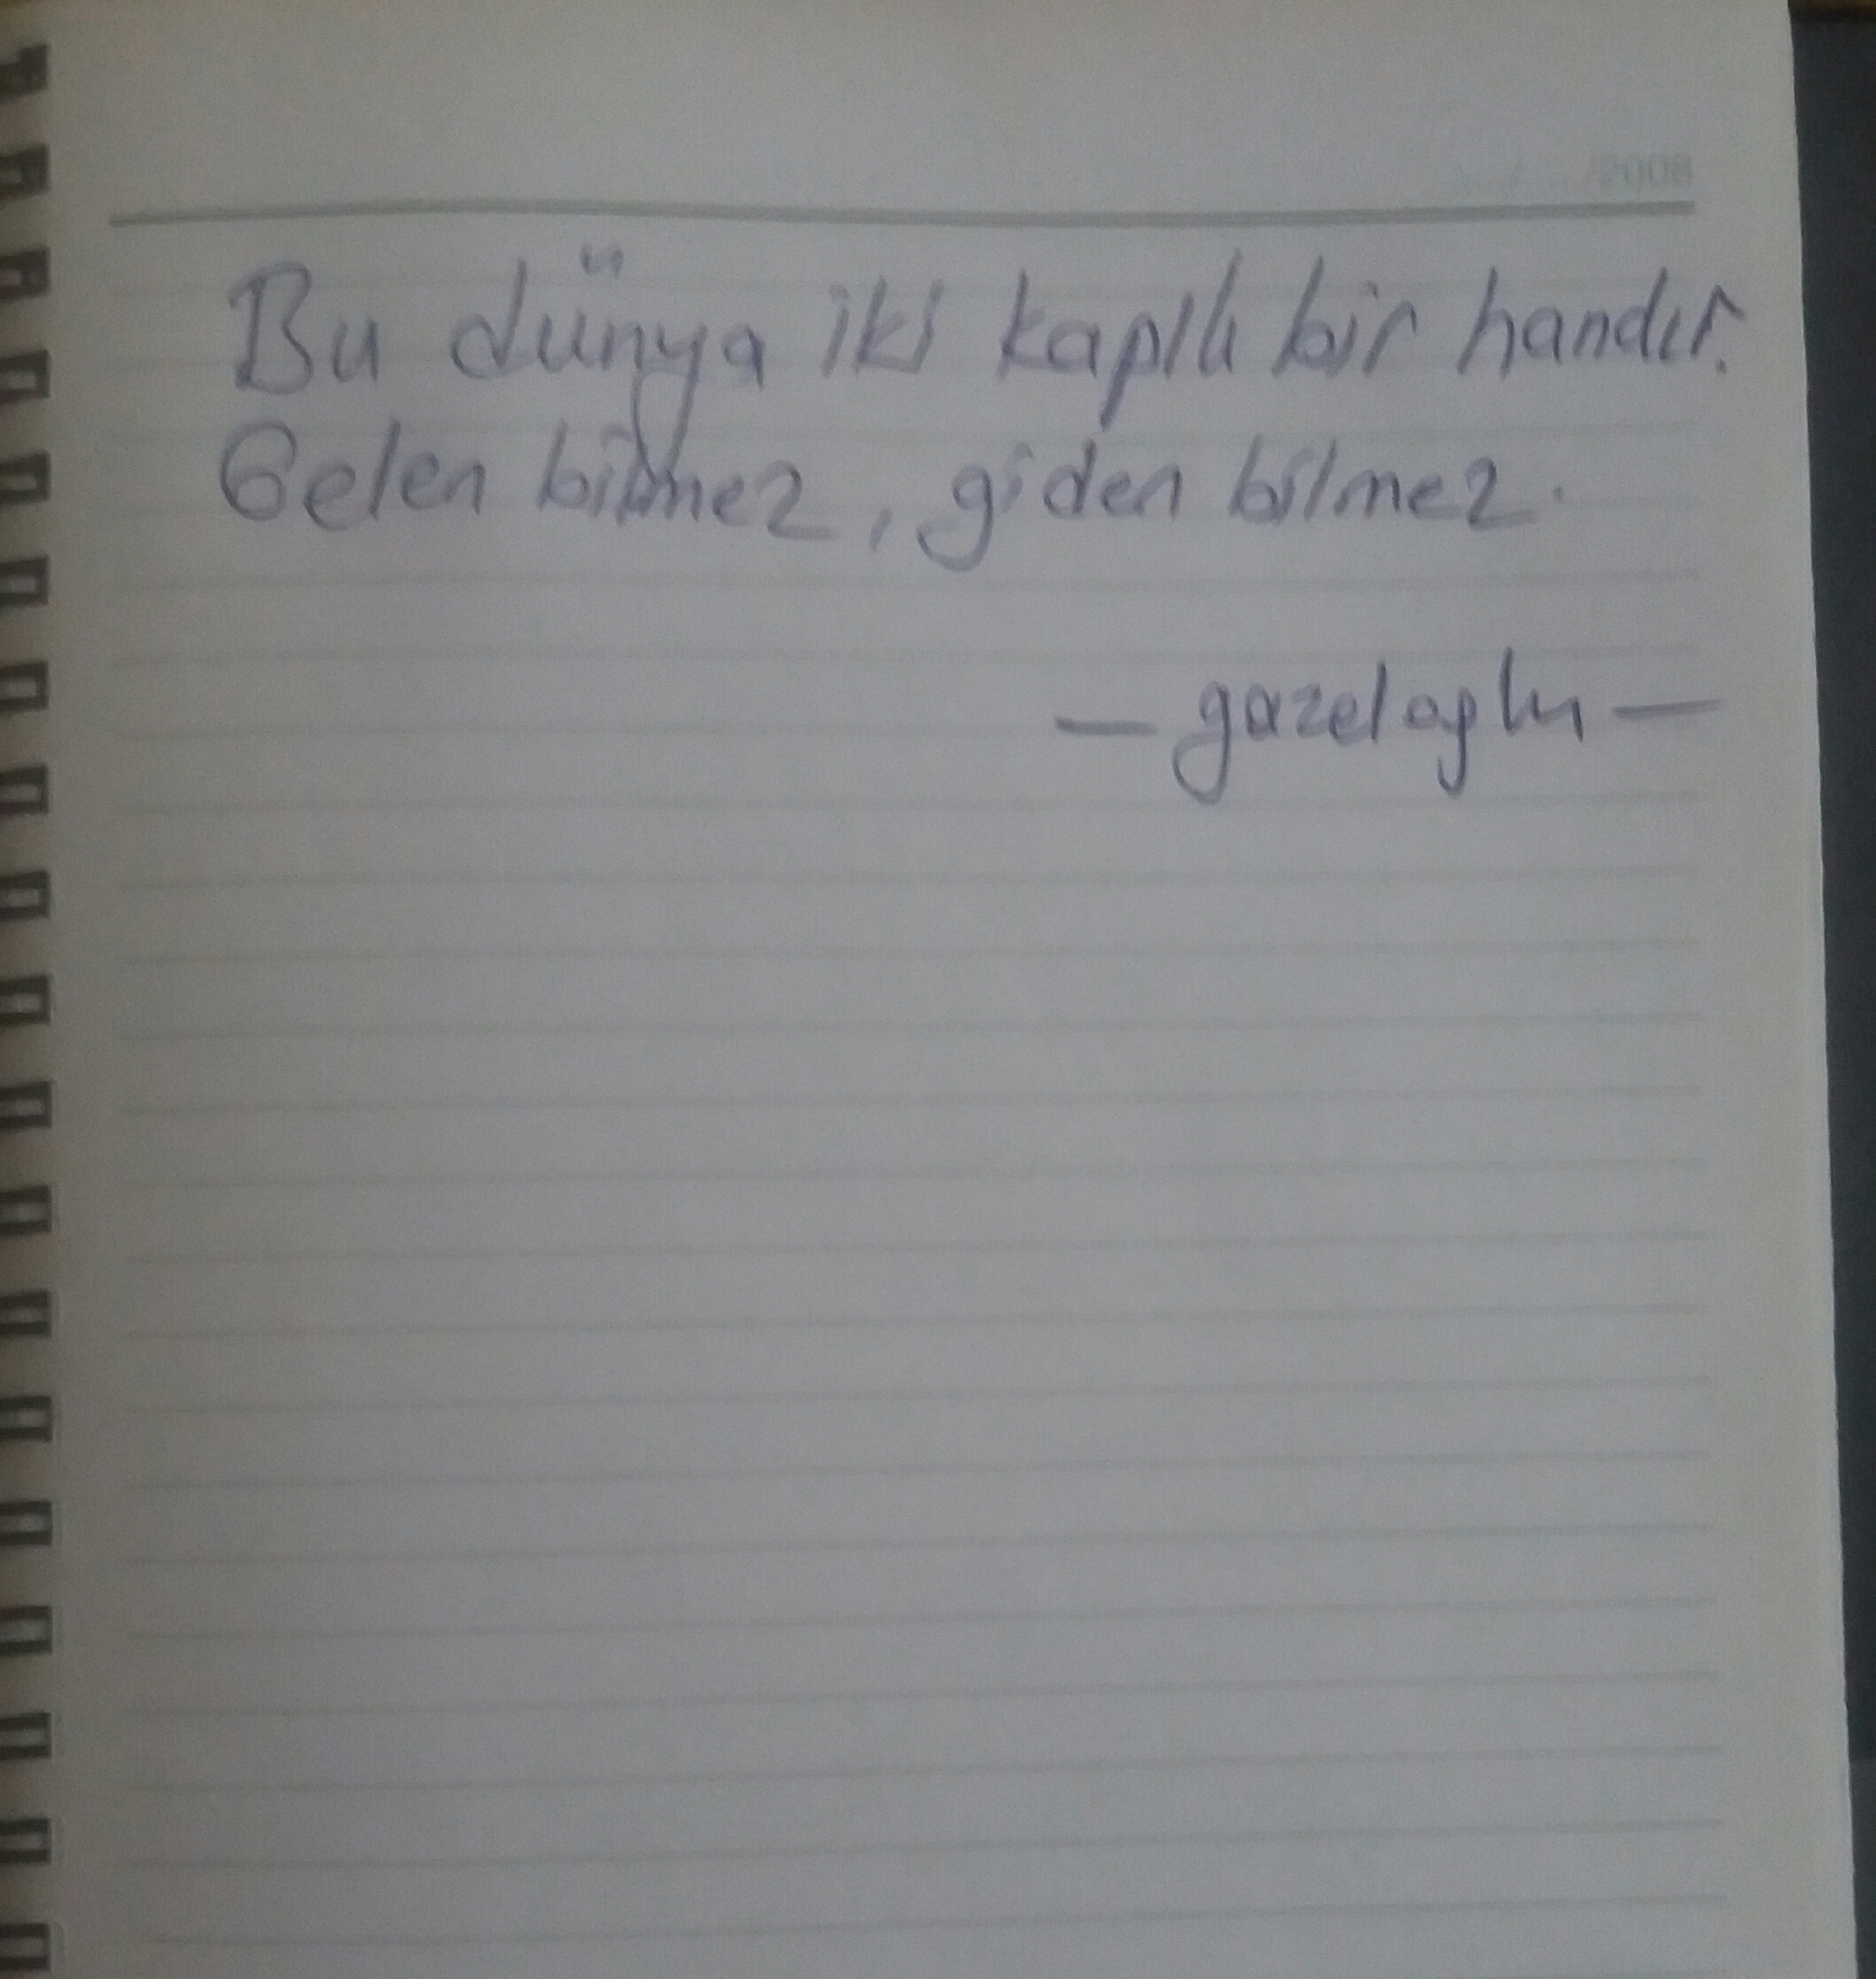 Bu dünya iki kapılı bir handır.
Gelen bilmez, giden bilmez.
— gazeloglu —